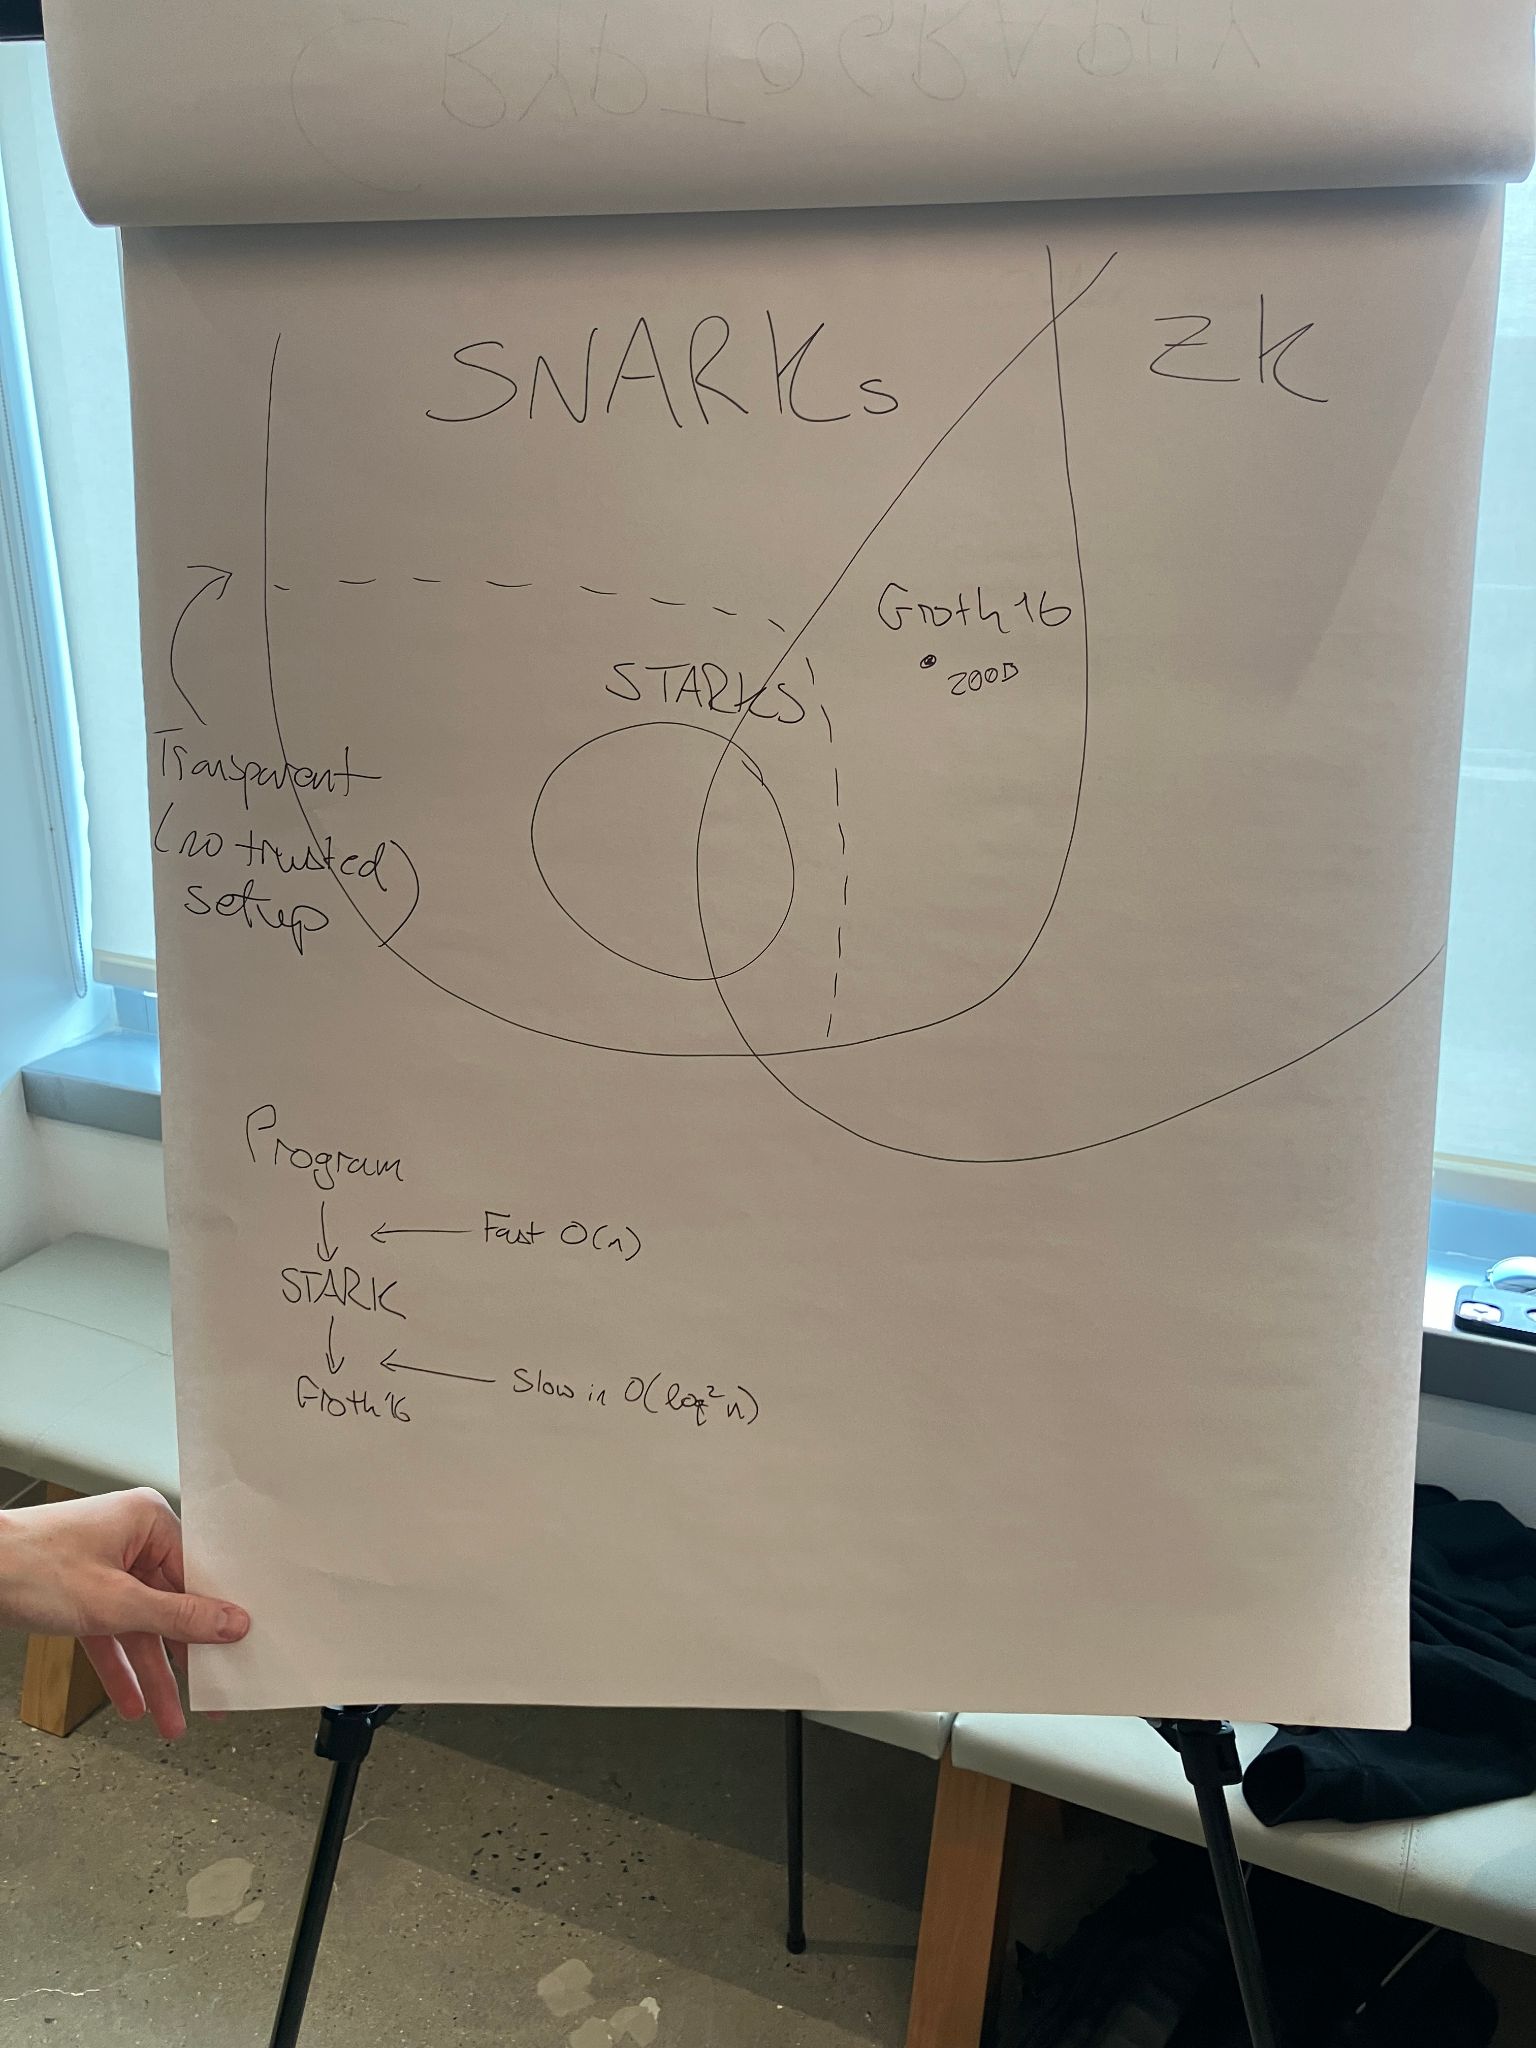 CRYPTOGRAPHY
SNARKs
ZK
Groth16
200B
STARKS
Transparent
(no trusted
setup)
Program
Fast O(n)
STARK
Slow in O(log² n)
Groth'16